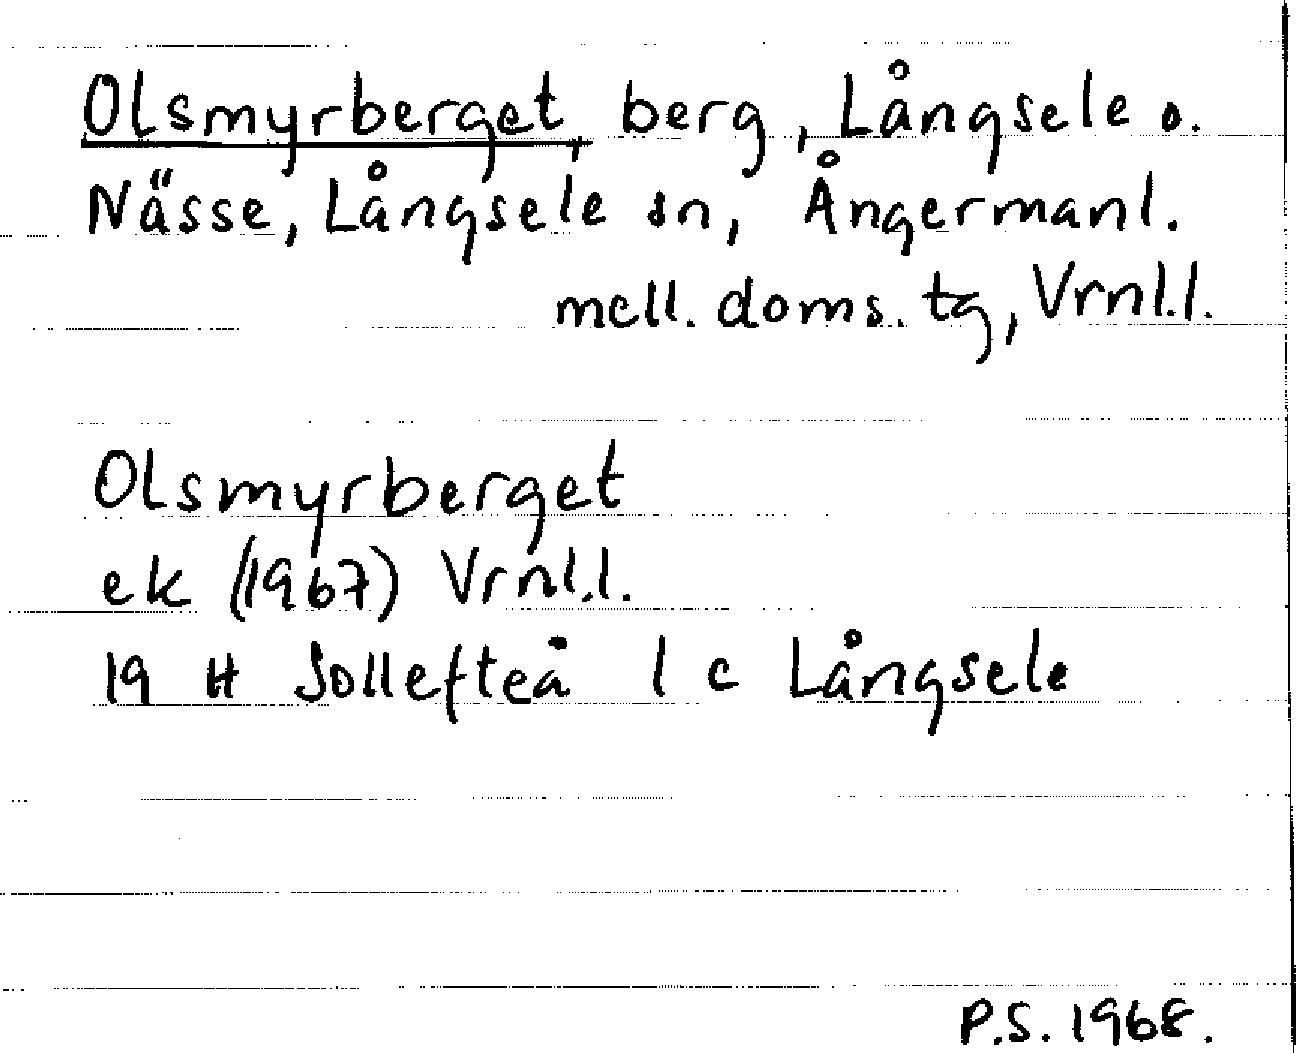 Olsmyrberget, berg, Långsele o.
Nässe, Långsele sn, Ångermanl.
mell. doms. tg, Vrnl.l.
Olsmyrberget
ek (1967) Vrnl.l.
19 H Sollefteå 1 c Långsele
P.S. 1968.